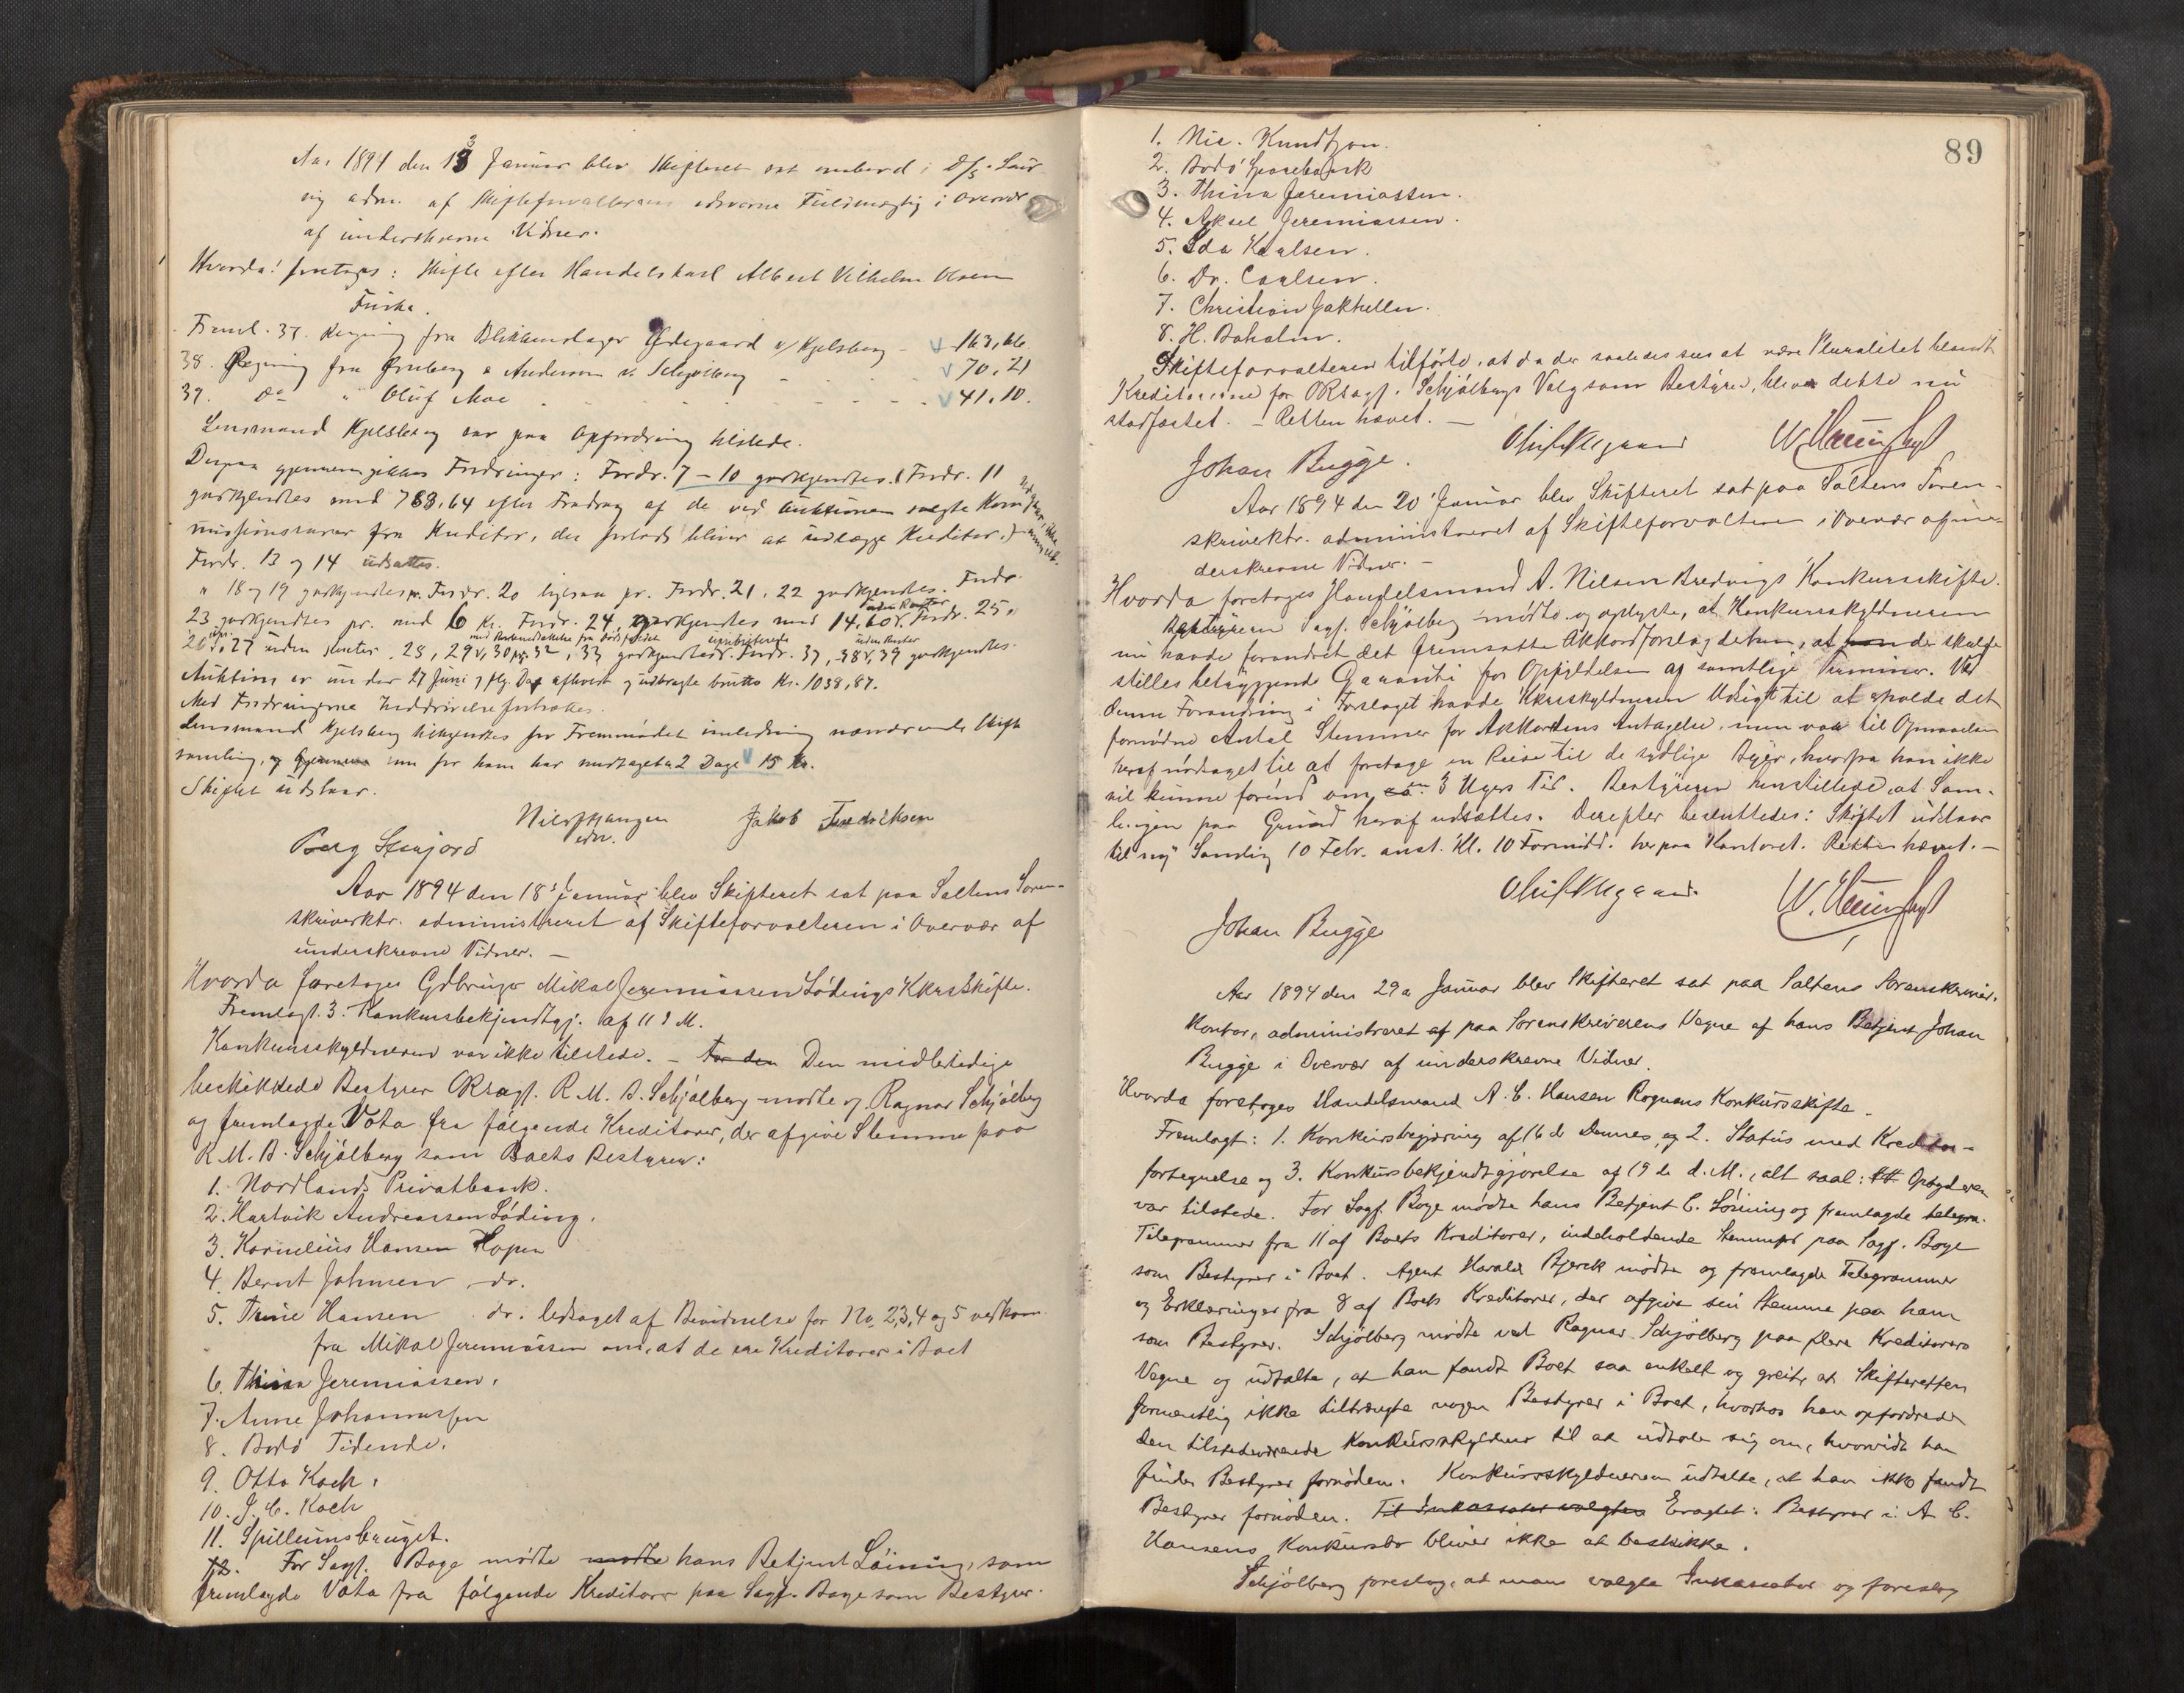 Aar 1894 den 13 Januar blev Skifteret sat ombord i D/S. Sair
vig adm. af Skifteforvalterens edsvorne Fuldmægtig i Overvær
af underskrevne Vidner.
Hvorda! foretoges: Skifte efter Handelskarl Albert Vilhelm Olsen
Fuske.
Freml. 37. Regning fra Blikkenslager Ødegaard v/ Kjelsberg - 163,66.
38. Regning fra Grønberg & Andersen v. Schjølberg - 70,21
39. Do " Oluf Moe - 41,10.
Lensmand Kjelsberg var paa Opfordring tilstede.
Derpaa gjennemgikkes Fordringer: Fordr. 7-10 godkjendtes. Fordr. 11
godkjendtes med 788,64 efter Fradrag af de ved Auktionen solgte Kom-
missionsvarer fra Kreditor, der forlods bliver at udlægge Kreditor.
Fordr. 13 og 14 udsattes.
" 18 og 19 godkjendtes. Fordr. 20 ligesaa pr. Fordr. 21, 22 godkjendtes. Fordr.
23 godkjendtes pr. med 6 Kr. Fordr. 24, godkjendtes med 14,60 uden Renter. Fordr. 25,
26, 27 uden renter, 28, 29, 30, 32, 33 godkjendtes uprioriterede. Fordr. 37, 38, 39 godkjendtes uden Renter.
Auktion er under 27 Juni og flg. Dag afholdt og udbragte brutto Kr. 1038,87.
Med Fordringerne Inddrivelse fortsættes.
Lensmand Kjelsberg tilkjendtes for Fremmødet i anledning nærværende Skifte
samling, som for ham har medtaget 2 Dage 15 Kr.
Skiftet udstaar.
Berg Storjord
Jakob Fredriksen
Aar 1894 den 18 Januar blev Skifteret sat paa Saltens Soren-
skriverktr. administreret af Skifteforvalteren i Overvær af
underskrevne Vidner. -
Hvorda foretoges Gdbruger Mikal Jeremiassen Lødings Kkursskifte.
Fremlagt. 3. Konkursbekjendtgj. af 11 d. M.
Konkursskyldneren var ikke tilstede. - For den Den midlertidige
beskikkede Bestyrer ORsagf. R.M.B. Schjølberg mødte v/ Ragnar Schjølberg
og fremlagde Vota fra følgende Kreditorer, der afgive Stemme paa
R.M.B. Schjølberg som Boets Bestyrer:
1. Nordlands Privatbank.
2. Hartvik Andreassen Løding.
3. Kornelius Hansen Hopen
4. Bernt Johnsen do.
5. Trine Hansen do. ledsaget af Bevidnelse for No. 2,3,4 og 5 vedkom.
fra Mikal Jeremiassen om, at de ere Kreditorer i Boet
6. Thina Jeremiassen.
7. Anne Johannessen
8. Bodø Tidende.
9. Otto Koch.
10. J. C. Koch
11. Spillumsbruget.
12. For Sagf. Boge mødte mødte hans Betjent Løining, som
fremlagde Vota fra følgende Kreditorer paa Sagf. Boge som Bestyrer.
89
1. Nic. Knudtzon.
2. Bodø Sparebank
3. Thina Jeremiassen.
4. Aksel Jeremiassen.
5. Ida Karlsen.
6. Dr. Carlsen.
7. Christian Jakhelln.
8. H. Boholm.
Skifteforvalteren tilførte, at da der saaledes sees at være Pluralitet blandt
Kreditorerne for ORsagf. Schjølbergs Valg som Bestyrer, blev dette nu
stadfæstet. - Retten hævet. -
Johan Bugge.
Aar 1894 den 20 Januar blev Skifteret sat paa Saltens Soren-
skriverktr. administreret af Skifteforvalteren i Overvær af un-
derskrevne Vidner. -
Hvorda foretoges Handelsmand A. Nilsen Bredvigs Konkursskifte.
Bestyreren Sagf. Schjølberg mødte og oplyste, at Konkursskyldneren
nu havde forandret det fremsatte Akkordforslag derhen, at der skulde
stilles betryggende Garanti for Opfyldelsen af samtlige Terminer. Ved
denne Forandring i Forslaget havde Kkursskyldneren Udsigt til at erholde det
fornødne Antal Stemmer for Akkordens Antagelse, men var til Opnaaelse
heraf nødsaget til at foretage en Reise til de sydlige Byer, hvorfra han ikke
vil kunne forend om ca. 3 Ugers Tid. Bestyreren henstillede, at Sam-
lingen paa Grund heraf udsættes. Derefter besluttedes: Skiftet udstaar
til ny Samling 10 Febr. anst. Kl. 10 Formidd. her paa Kontoret. Retten hævet. -
Johan Bugge
Aar 1894 den 29de Januar blev Skifteret sat paa Saltens Sorenskriver-
kontor, administreret af paa Sorenskriverens Vegne af hans Betjent Johan
Bugge i Overvær af underskrevne Vidner.
Hvorda foretoges Handelsmand A. C. Hansen Rognans Konkursskifte.
Fremlagt: 1. Konkursbegjæring af 16 de Dennes, og 2. Status med Kreditor-
fortegnelse og 3. Konkursbekjendtgjørelse af 19 de d. M., alt saal: Opbyderen
var tilstede. For Sagf. Boge mødte hans Betjent C. Løining og fremlagde telegra.
Telegrammer fra 11 af Boets Kreditorer, indeholdende Stemmer paa Sagf. Boge
som Bestyrer i Boet. Agent Harald Bjerck mødte og fremlagde Telegrammer
og Erklæringer fra 8 af Boets Kreditorer, der afgive sin Stemme paa ham
som Bestyrer. Schjølberg mødte ved Ragnar Schjølberg paa flere Kreditorers
Vegne og udtalte, at han fandt Boet saa enkelt og greit, at Skifteretten
formentlig ikke tiltrængte nogen Bestyrer i Boet, hvorhos han opfordrede
den tilstedeværende Konkursskyldner til at udtale sig om, hvorvidt han
finder Bestyrer fornøden. Konkursskyldneren udtalte, at han ikke fandt
Bestyrer fornøden. Til Inkassator valgtes Eragtet: Bestyrer i A. C.
Hansens Konkursbo bliver ikke at beskikke.
Schjølberg foreslog, at man valgte Inkassator og foreslog